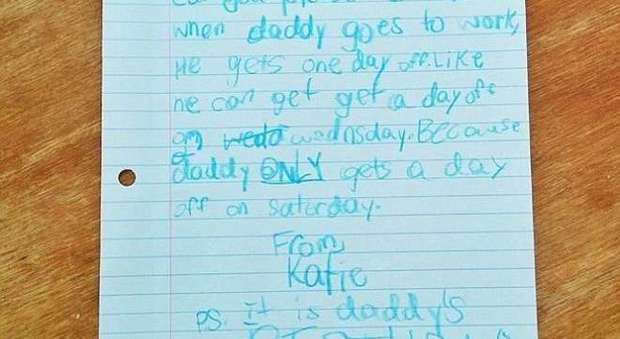 can you
when daddy goes to work,
He gets one day off. Like
he can get get a day off
on wedo wednsday. Because
daddy ONLY gets a day
off on saturday.
From,
Katie
Ps. it is daddy's